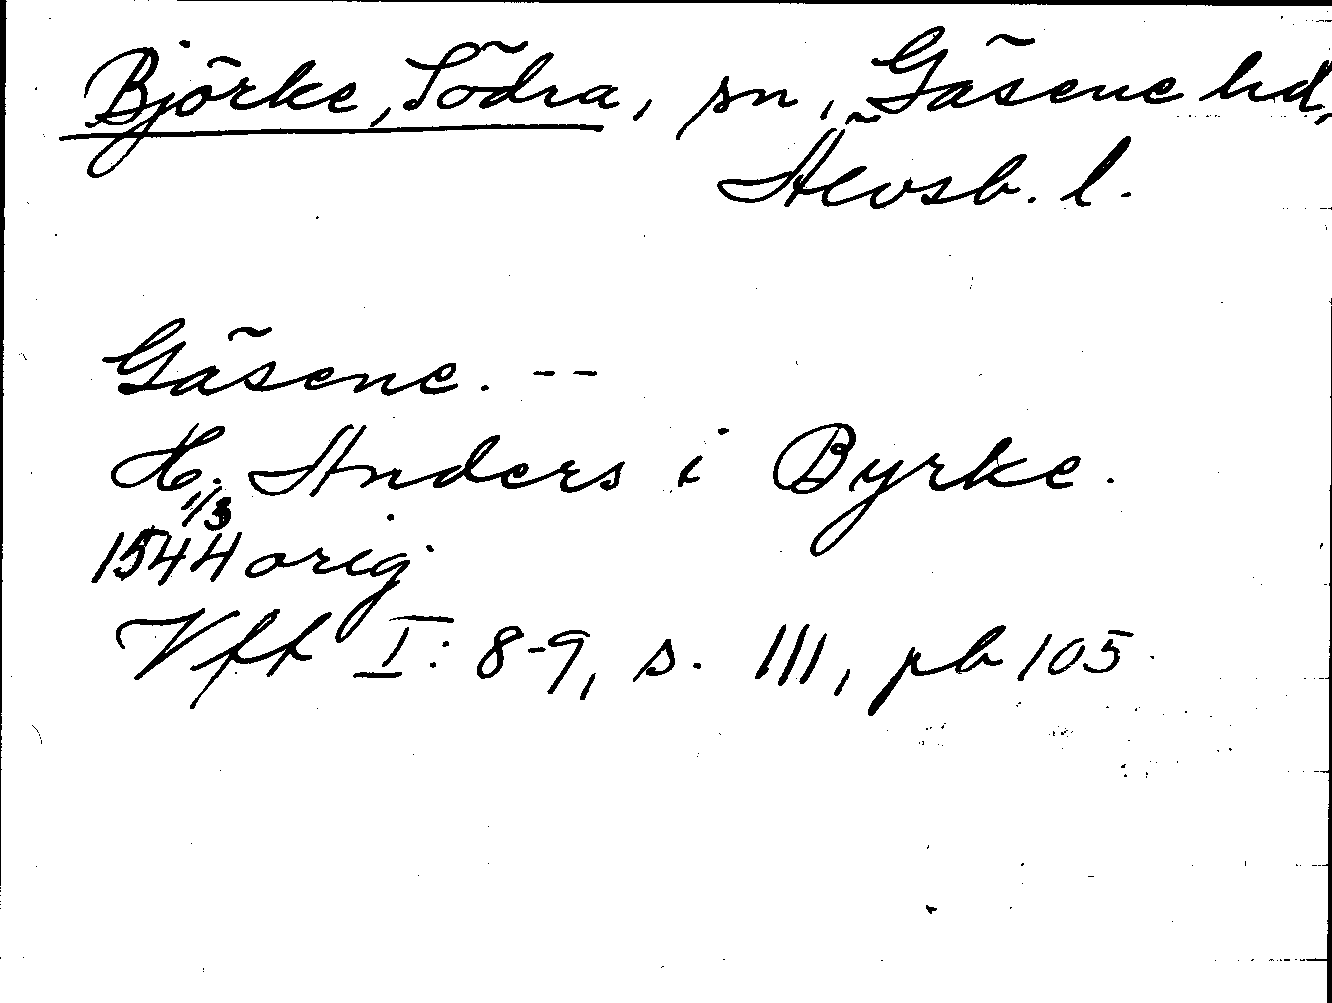 Björke, Södra, sn, Gäsene hd,
Älvsb. l.
Gäsene. --
H. Anders i Byrke.
1/3
1544 orig.
Vff I: 8-9, s. 111, pb 105